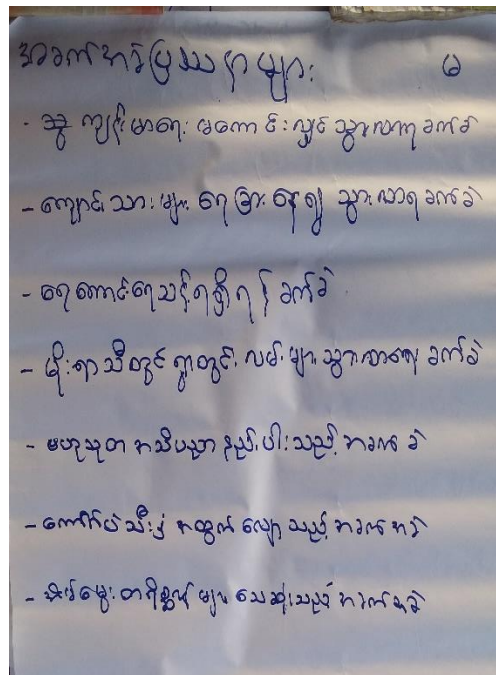 အခက်အခဲပြဿနာများ ဖ
- ကျန်းမာရေး မကောင်းလျှင် သွားလာရခက်ခဲ
- ကျောင်းသားများ ရေခြားနေ၍ သွားလာရခက်ခဲ
- ရေကောင်းရေသန့်ရရှိရန် ခက်ခဲ
- မိုးရာသီတွင် ရွာတွင်း လမ်းများ သွားလာရေး ခက်ခဲ
- ဗဟုသုတ အသိပညာ နည်းပါးသည့် အခက်ခဲ
- ကောက်ပဲသီးနှံ အထွက်လျော့သည့် အခက်အခဲ
- အိမ်မွေးတိရိစ္ဆာန်များ သေဆုံးသည့် အခက်အခဲ